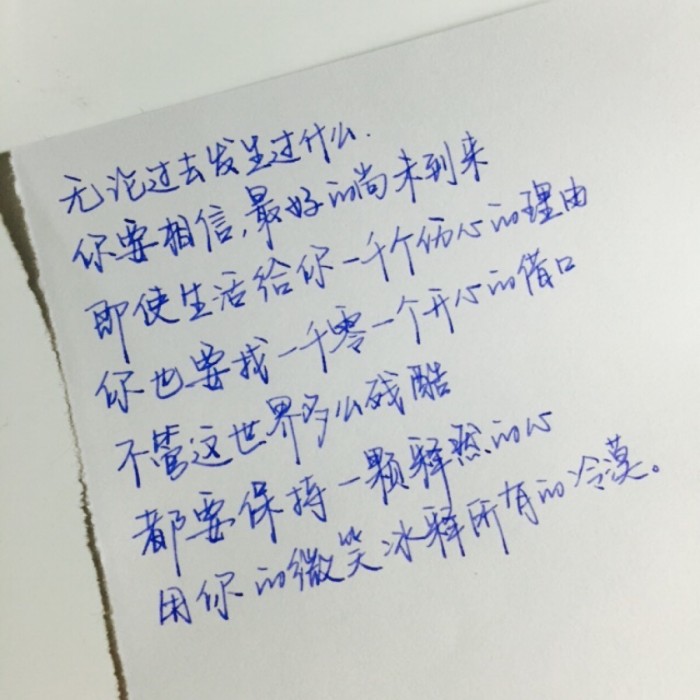 无论过去发生过什么.
你要相信,最好的尚未到来
即使生活给你一千个伤心的理由
你也要找一千零一个开心的借口
不管这世界多么残酷
都要保持一颗释然的心
用你的微笑冰释所有的冷漠。